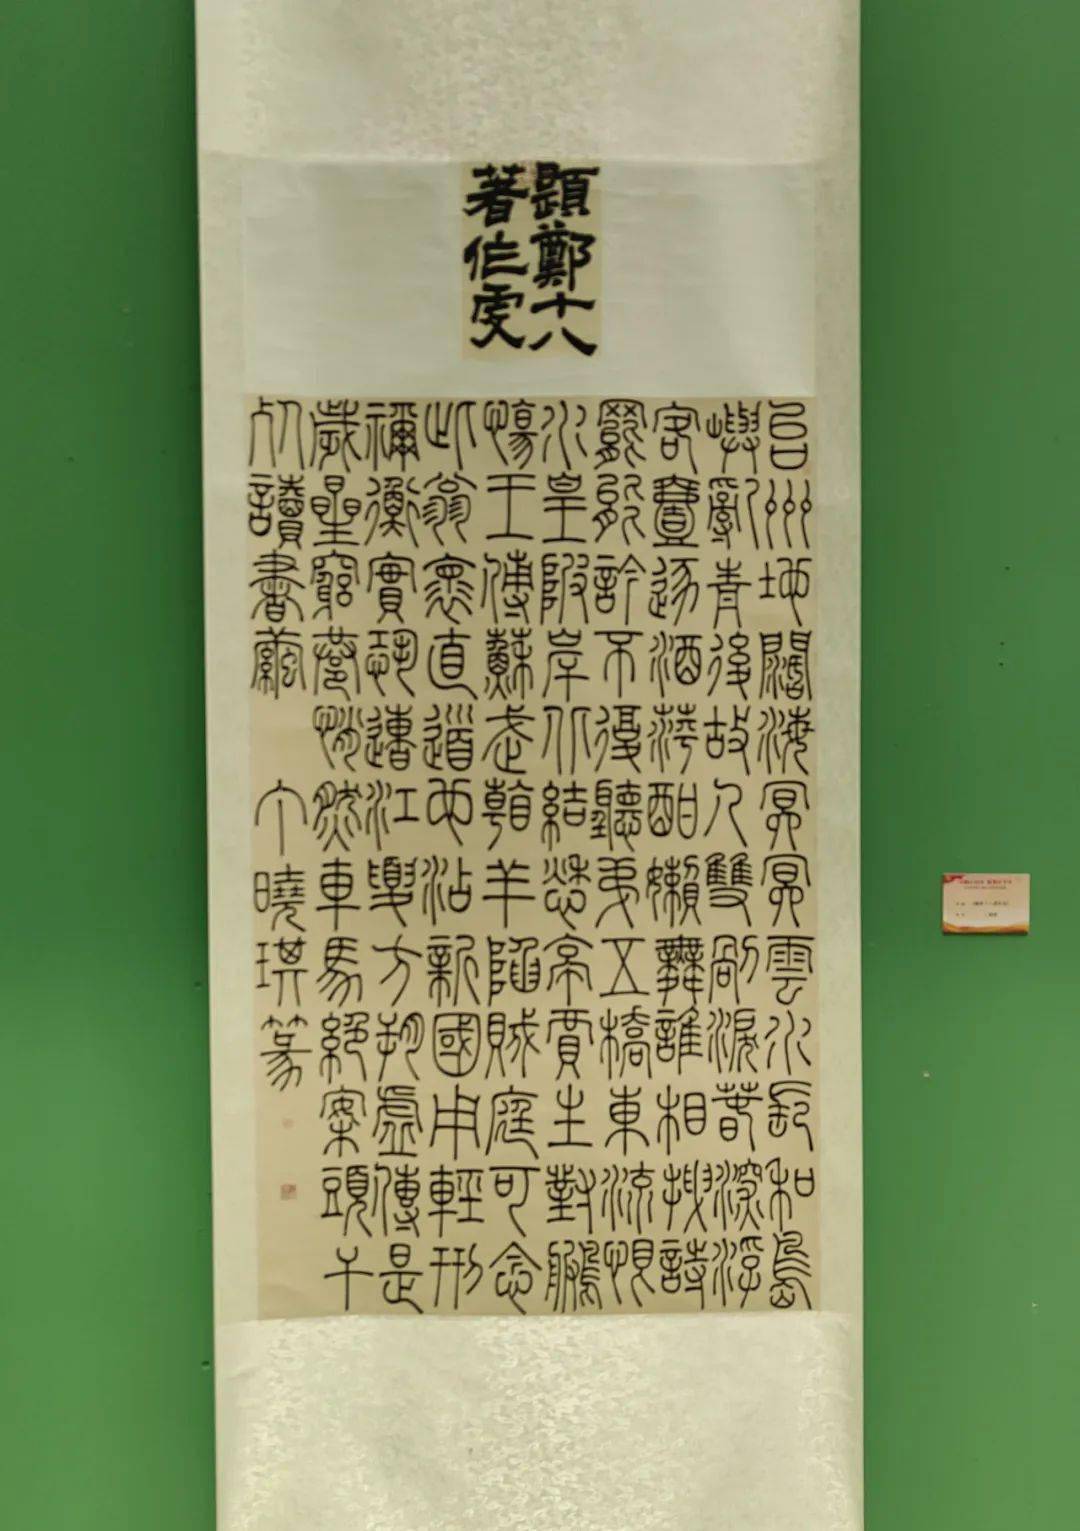 題鄭十八
著作虔
台州地闊海冥冥雲水長和島
嶼亂青後故人雙別淚春深浮
客壹逐酒萍酣懶舞誰相拽詩
罷能訡不復聽弟五橋東流恨
水皇陂岸北結愁亭賈生對鵩
傷王傅蘇武看羊陷賊庭可念
此翁懷直道也沾新國用輕刑
禰衡實恐遭江夏方朔虛傳是
歲星窮巷悄然車馬絕案頭干
死讀書螢 丁曉琪篆